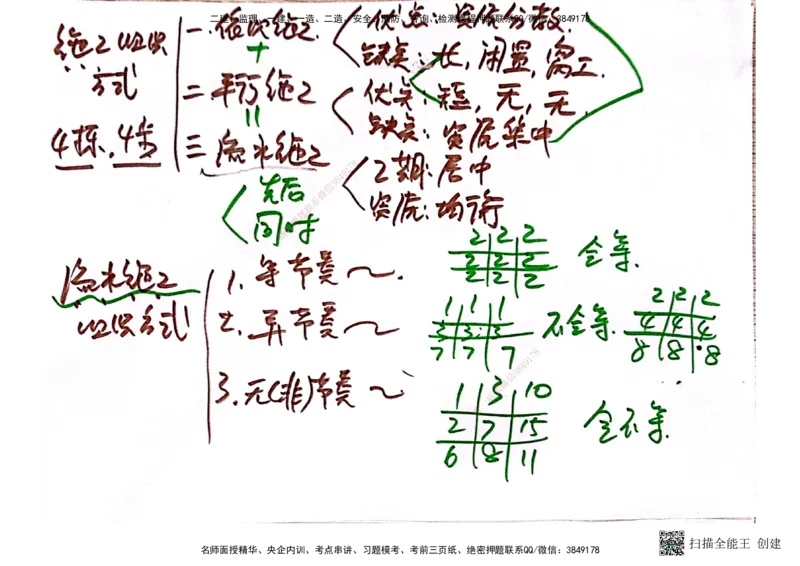 二建、监理、一建、一造、二造、安全、消防、咨询、检测课程押题联系QQ/微信：3849178
施工组织方式
4栋，4步
一、依次施工
优点：资源分散
缺点：长，闲置，窝工
+
二、平行施工
优点：短，无，无
缺点：资源集中
=
三、流水施工
工期：居中
资源：均衡
先后
同时
流水施工组织方式
1. 等节奏～
2 2 2
2 2 2
2 2 2
全等.
2. 异节奏～
1 1 1
3 3 3
7 7 7
不全等.
2 2 2
4 4 4
8 8 8
3. 无(非)节奏～
1 3 10
2 7 15
6 8 11
全不等.
名师面授精华、央企内训、考点串讲、习题模考、考前三页纸、绝密押题联系QQ/微信：3849178
扫描全能王 创建